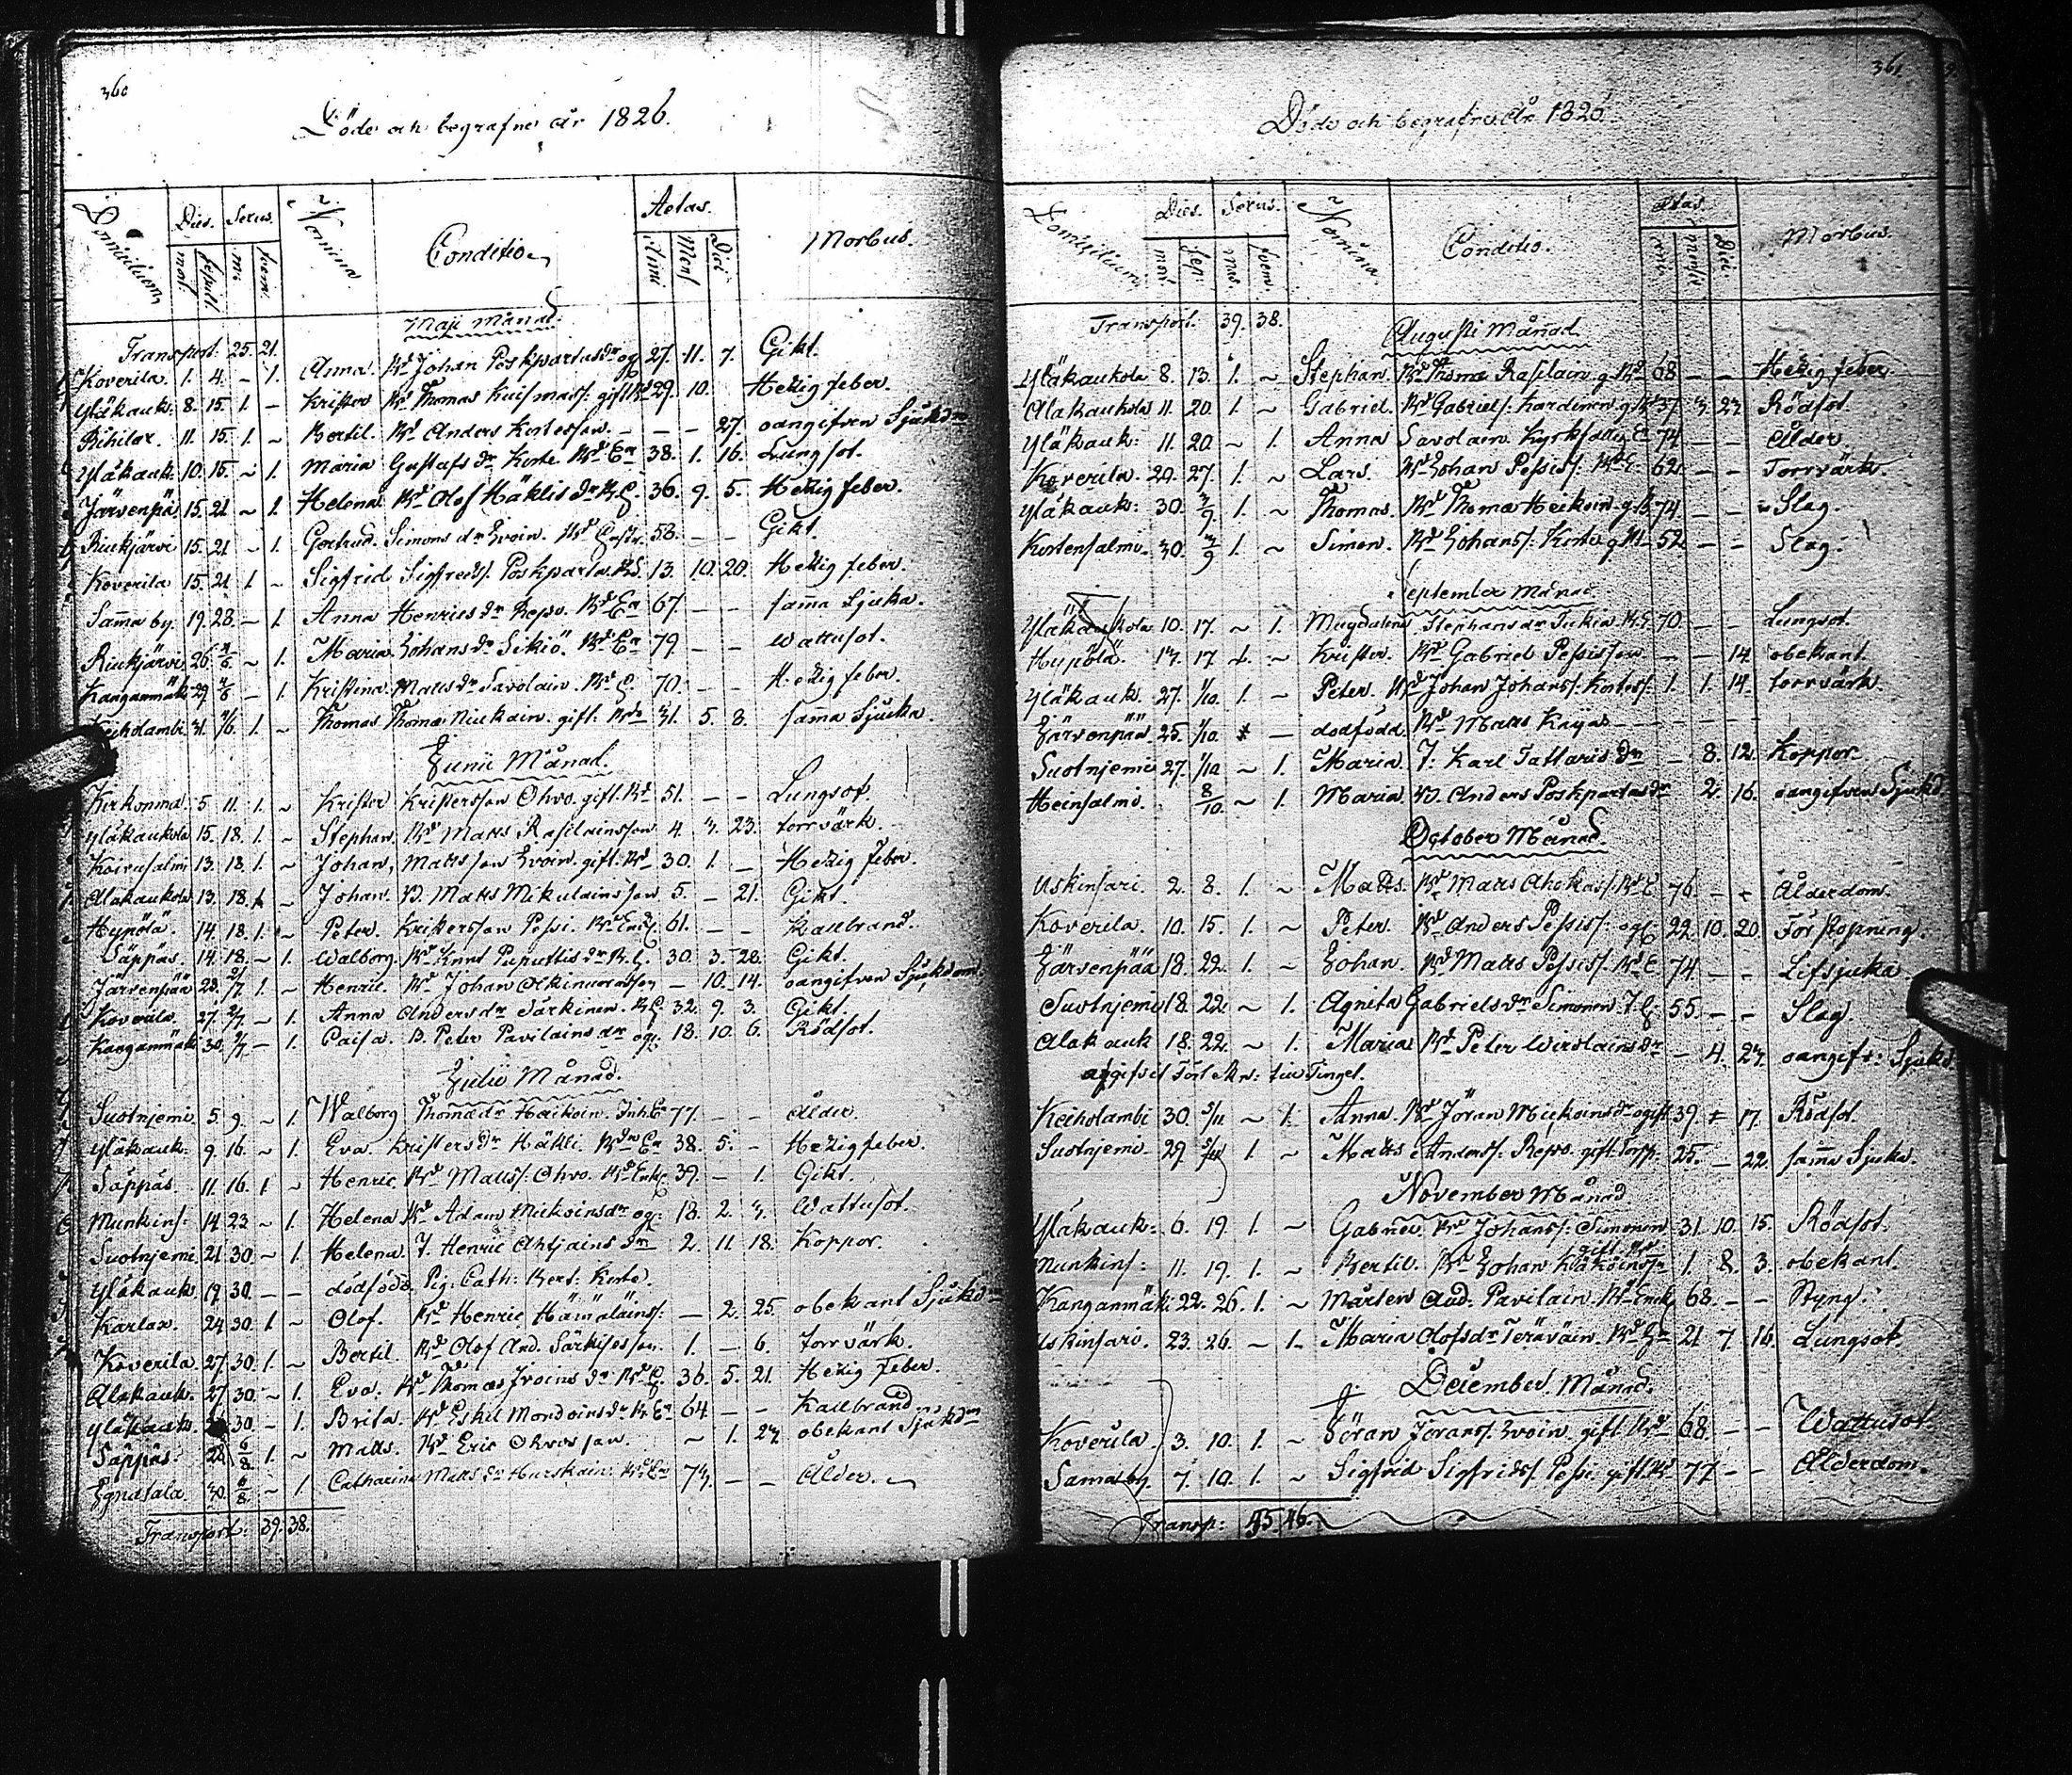 360
Döde och begrafne år 1826.
Domicilium Dies. Sexus. Nomina Conditio Aetas. Morbus.
mort. sepult. m. foem. Anni Mens Dies
Maji Månad.
Transport. 25. 21.
Koverila. 1. 4. – 1. Anna Bd Johan Poskpartasdr og 27. 11. 7. Gikt.
Yläkauk. 8. 15. 1. – Krister Bd Thomas gift 29. 10. Hetzig feber.
11. 15. 1. ~ Bertil. Bd Anders Kortesson. – – – 27. oangifven Sjukdm
Yläkauk. 10. 15. ~ 1. Maria Gustafs dr Korte Bd En 38. 1. 16. Lungsot.
Järvenpä 15. 21 ~ 1. Helena Bd Olof Häklis dr 36. 9. 5. Hetzig feber.
Riukjärvi 15. 21 ~ 1. Gertrud. Simons dr Ivoin. Bd 58. – – Gikt.
Koverila 15. 21 1. ~ Sigfrid Sigfreds. Poskparta. 13. 10. 20. Hetzig feber.
Sama by. 19. 28. – 1. Anna Henrics dr Repo. Bd En 67. – – sama Sjuka.
Riukjärvi 26. 4/6 ~ 1. Maria Johans dr Sikiö. Bd En 79. – – Wattusot.
Kanganmäk 29 4/6 – 1. Kristina Matts dr Savolain. 70. – – Hetzig feber.
Keiholambi 31. 4/6. 1. – Thomas Thomæ Niukain. gift. 31. 5. 8. sama Sjucka.
Junii Månad.
Kirkonma. 5. 11. 1. ~ Krister Kristersson Ohvo. gift. Bd 51. – – Lungsot
Yläkaukola 15. 18. 1. ~ Stephan. Bd Matts Rasilainsson 4. 3. 23. torrvärk.
Koirusalmi 13. 18. 1. ~ Johan, Matts son Ivoin. gift. Bd 30. 1. – Hetzig feber.
Alakaukola 13. 18. 1. ~ Johan. B. Matts Mikulainsson 5. – 21. Gikt.
Hypölä. 14. 18. 1. ~ Peter. Kristersson Pessi. 61. – – Kallbrand.
Säppäs. 14. 18. ~ 1. Walborg. Bd Knut Puputtis dr 30. 3. 28. Gikt.
Järvenpää 1. ~ Henric. Bd Johan – 10. 14. oangifven Sjukdom
Koverila 27. 2/7 ~ 1. Anna Anders dr Särkinen. 32. 9. 3. Gikt.
Kanganmäk 30. – 1. Caisa. B. Peter Pavilains dr og: 18. 10. 6. Rödsot.
Julii Månad.
Suotnjemi 5. 9. ~ 1. Walborg Thomædr Haikoin. Inh: En 77. – – Ålder
Yläkauk. 9. 16. ~ 1. Eva Kristers dr Häkli. En 38. 5. – Hetzig feber.
Säppäs. 11. 16. 1 ~ Henric Bd Matts/: Ohvo. 39. – 1. Gikt.
Munkins: 14. 23 ~ 1. Helena Bd Adam Miikoinsdr og: 18. 2. 3. Wattusot.
Suotnjemi 21. 30. ~ 1. Helena. T. Henric Ahtjains dr 2. 11. 18. Koppor.
Yläkauk 19. 30. – – dödfödd. Pig. Cath: Bert: Korte.
Karlax. 24. 30. 1. ~ Olof. Bd Henric Hämäläins/: – 2. 25. obekant Sjukdm
Koverila. 27. 30. 1. ~ Bertil. Bd Olof And. Särkisesson. 1. – 6. torrvärk.
Alakauk. 27. 30. ~ 1. Eva. Bd Thomas Ivoins dr 36. 5. 21. Hetzig Feber.
Yläkauk. 30. ~ 1. Brita. Bd Eskil Mondoins dr En 64. – – Kallbrand
Säppäs. 28. 6/8 1. ~ Matts. Bd Eric Ohvosson. ~ 1. 23. obekant Sjukdm
30. 6/8 ~ 1. Catharina Matts dr Hurskain. Bd En 73. – – Ålder.
Transport. 39. 38.
361.
Döde och begrafne År 1826.
Domicilium Dies. Sexus. Nomina Conditio. Ætas. Morbus.
mort. Sep: mas. foem. anni mens dies
Transport. 39. 38.
Augusti Månad.
Yläkaukola 8. 13. 1. ~ Stephan. Bd Thomæ Rasilain. g. Bd 68 – – Hetzig feber.
Alakaukola 11. 20. 1. ~ Gabriel. Bd Gabriels/: g. Bd 37. 3. 23. Rödsot.
Yläkauk: 11. 20 ~ 1. Anna Savolain. 74. – – Ålder.
Koverila 20. 27. 1. ~ Lars. Bd Johan Pessis/. 62. – – Torrvärk.
Yläkauk: 30. 3/9. 1. ~ Thomas. Bd Thomæ Heikoin. 74. – – Slag.
Kortensalmi 30. 3/9 1. ~ Simon. Bd Johans/: Korte g. Bd 52. – – Slag.
September Månad.
Yläkaukola 10. 17. ~ 1. Magdalena Stephans dr 70. – – Lungsot.
Hypölä. 13. 17. 1. ~ Krister. Bd Gabriel Pessisson – – 14. obekant.
Yläkauk. 27. 1/10. 1. ~ Peter. Bd Johan Johans/: Kortes/: 1. 1. 14. torrvärk.
Järvenpää 25. 1/10. – dödfödd. Bd Matts
Suotnjemi 27. 1/10 ~ 1. Maria. T. Karl Tattaris dr – 8. 12. Koppor.
Heinsalmi. 8/10. ~ 1. Maria B. Anders Poskpartas dr 2. 16. oangifven Sjukd
October Månad.
Uskinsari. 2. 8. 1. ~ Matts. Bd Matts Ahokas/: Bd E 76 – – Ålderdom.
Koverila. 10. 15. 1. ~ Peter. Bd Anders Pessis/: og: 22. 10. 20. Förstopning.
Järvenpää 18. 22. 1. ~ Johan. Bd Matts Pessis/: Bd E 74. – – Lefsjuka
Suotnjemi 18. 22. ~ 1. Agnita Gabriels dr Simonen. 55. – – Slag.
Alakauk 18. 22. ~ 1. Maria Bd Peter Wirolains dr – 4. 23. oangifv: Sjukd.
Tingel.
Keiholambi 30. 5/11 ~ 1. Anna Bd Jöran Miikoins dr 39. 17. Rödsot
Suotnjemi 29. 5/11 1. ~ Matts Anders/: Repo. gift: Torp. 25. – 22. sama Sjuka.
November Månad
Yläkauk: 6. 19. 1. ~ Gabriel Bd Johans/: Simonen 31. 10. 15. Rödsot.
gift Bd
Munkins: 11. 19. 1. ~ Bertil. Bd Johan 1. 8. 3. obekant.
Kanganmäki 22. 26. 1. ~ Mårten And. Pavilain. Bd Enk: 68. – – Styng.
Uskinsari. 23. 26. ~ 1. Maria Olofs dr Teräväin. 21. 7. 16. Lungsot.
December Månad.
Koverila 3. 10. 1. ~ Jöran Jörans/: Ivoin gift Bd 68. – – Wattusot
Sama by. 7. 10. 1. ~ Sigfrid Sigfrids/: Pessi gift Bd 77 – – Ålderdom.
Transp: